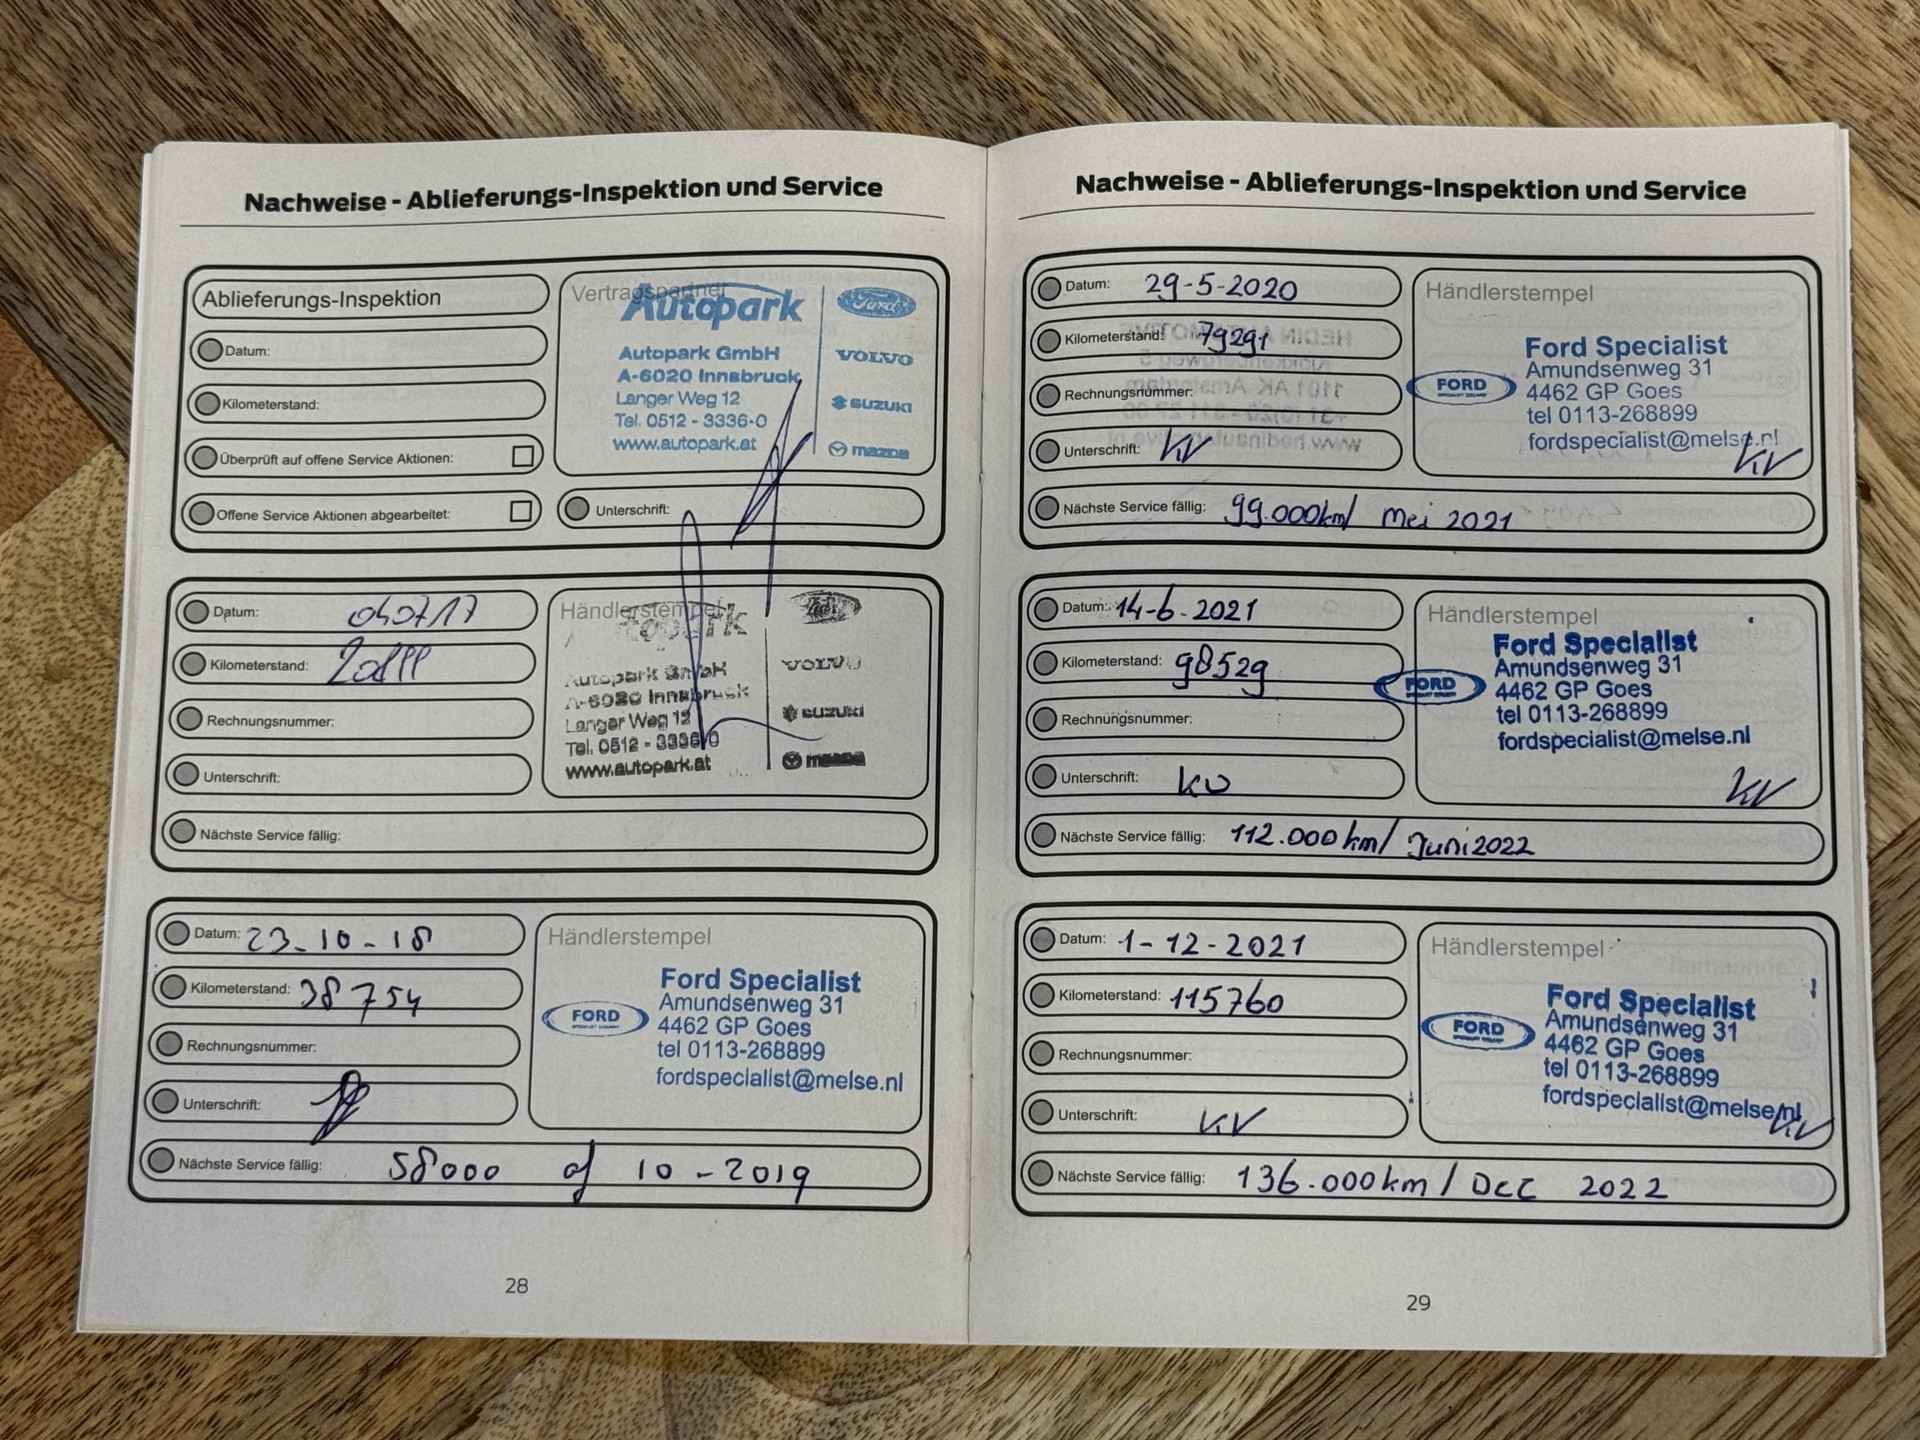 Nachweise - Ablieferungs-Inspektion und Service
Ablieferungs-Inspektion
Datum:
Kilometerstand:
Überprüft auf offene Service Aktionen:
Offene Service Aktionen abgearbeitet:
Vertragspartner
Autopark
Autopark GmbH
A-6020 Innsbruck
Langer Weg 12
Tel. 0512 - 3336-0
www.autopark.at
Ford
VOLVO
SUZUKI
mazda
Unterschrift:
Datum: 040717
Kilometerstand:
Rechnungsnummer:
Unterschrift:
Nächste Service fällig:
Händlerstempel
Autopark GmbH
A-6020 Innsbruck
Langer Weg 12
Tel. 0512 - 3336-0
www.autopark.at
VOLVO
SUZUKI
mazda
Datum: 23-10-18
Kilometerstand: 38754
Rechnungsnummer:
Unterschrift:
Händlerstempel
FORD
Ford Specialist
Amundsenweg 31
4462 GP Goes
tel 0113-268899
fordspecialist@melse.nl
Nächste Service fällig: 58000 of 10-2019
28
Nachweise - Ablieferungs-Inspektion und Service
Datum: 29-5-2020
Kilometerstand: 79291
Rechnungsnummer:
Unterschrift: KV
Händlerstempel
FORD
Ford Specialist
Amundsenweg 31
4462 GP Goes
tel 0113-268899
fordspecialist@melse.nl
KV
Nächste Service fällig: 99.000km/ Mei 2021
Datum: 14-6-2021
Kilometerstand: 98529
Rechnungsnummer:
Unterschrift: KV
Händlerstempel
FORD
Ford Specialist
Amundsenweg 31
4462 GP Goes
tel 0113-268899
fordspecialist@melse.nl
KV
Nächste Service fällig: 112.000km/ Juni 2022
Datum: 1-12-2021
Kilometerstand: 115760
Rechnungsnummer:
Unterschrift: KV
Händlerstempel
FORD
Ford Specialist
Amundsenweg 31
4462 GP Goes
tel 0113-268899
fordspecialist@melse.nl
KV
Nächste Service fällig: 136.000km/ Dec 2022
29